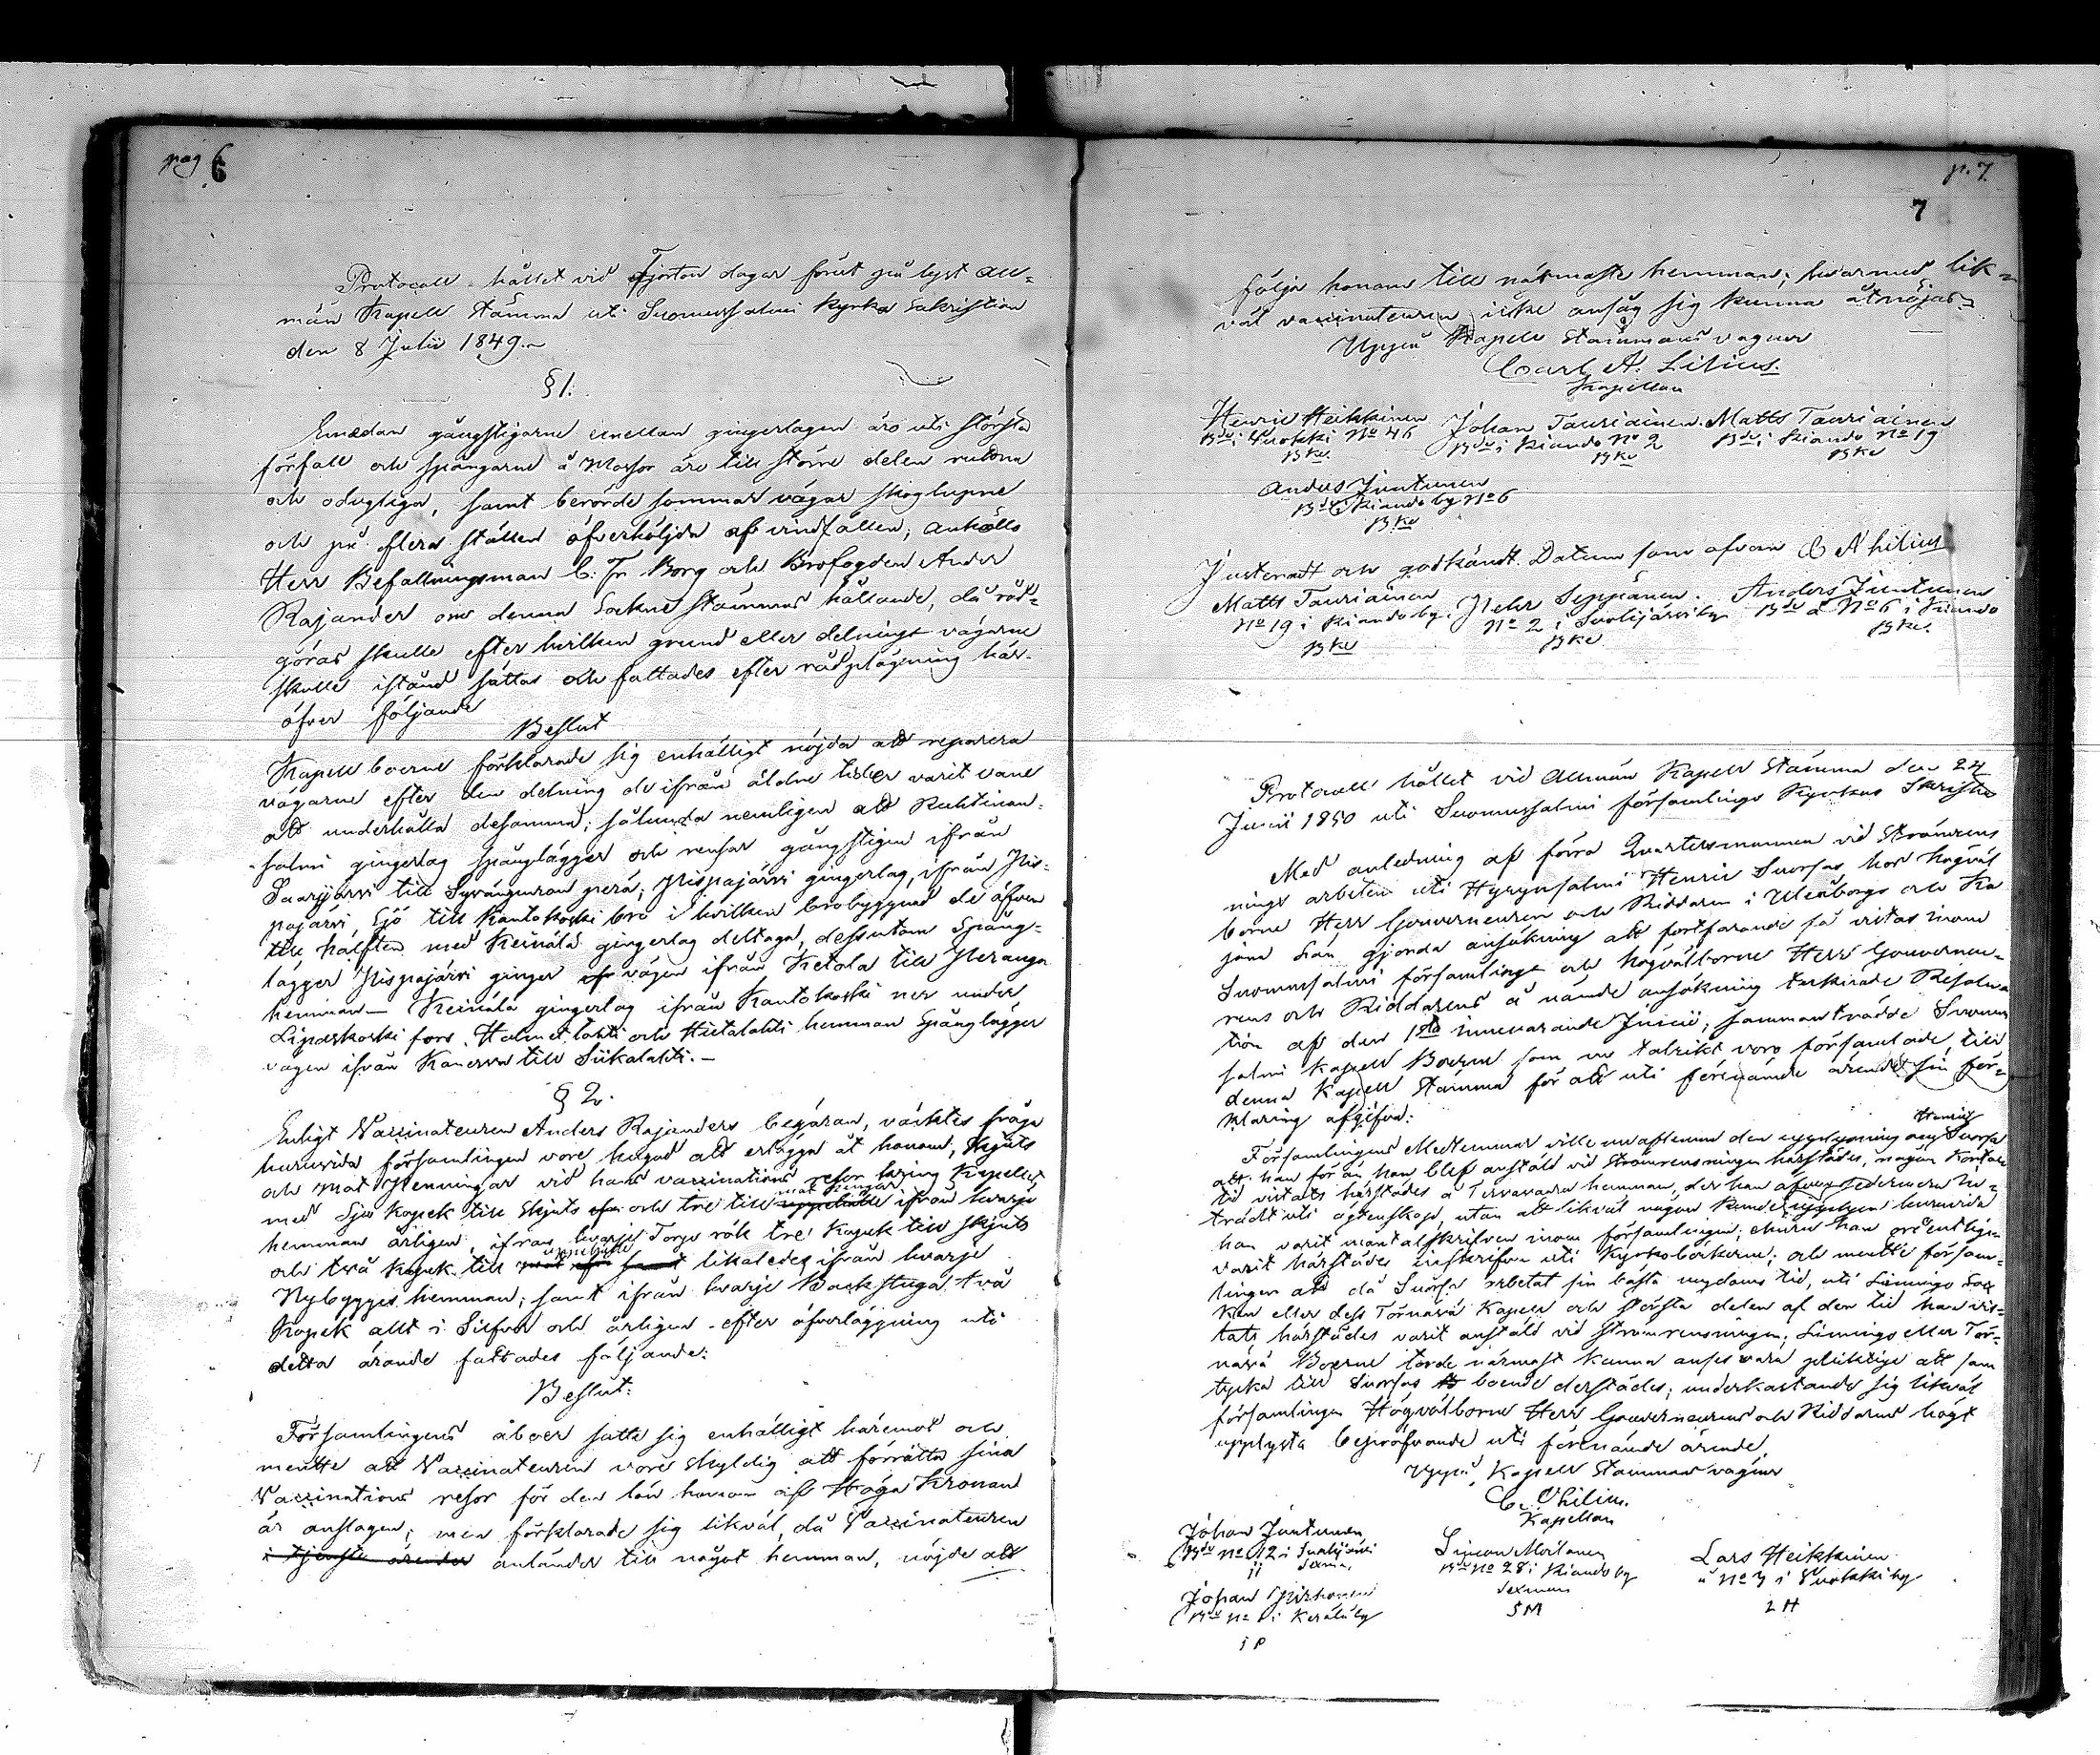 pag 6
6
Protocoll hållet vid Fjorton dagar förut på lyst All=
män Kapell Stämma uti Suomussalmi Kyrko Sakristian
den 8 Julii 1849.
§ 1.
Emedan gångstigarne emellan gingerlagen äro uti största
förfall och spångarne å Mossor äro till större delen rutna
och odugliga, samt berörde sommar vägar skoglupne
och på flera ställen öfverhöljda af vindfällen; anhöllo
Herr Befallningsman C. Fr Borg och Brofogden Anders
Rajander om denna Sockne stämmas hållande, då råd=
göras skulle efter hvilken grund eller delning vägarne
skulle istånd sättas och fattades efter rådplägning här=
öfver följande
Beslut
Kapellboerne förklarade sig enhälligt nöjda att reparera
vägarne efter den delning de ifrån äldre tider varit vane
att underhålla desamma; sålunda nemligen att Ruhtinan=
salmi gingerlag spånglägger och rensar gångstigen ifrån
Saarijärvi till perä; Pispajärvi gingerlag, ifrån Pis=
pajärvi Sjö till Kantokoski bro i hvilken brobyggnad de äfven
till hälften med Keinälä gingerlag deltaga, dessutom Spång=
lägger Pispajärvi ginger vägen ifrån Ketola till Peranga
hemman — Keinälä gingerlag ifrån Kantokoski ner under
fors. och Hietalahti hemman Spånglägger
vägen ifrån Kanerva till Siikalahti. —
§ 2.
Enligt Vaccinateuren Anders Rajanders begäran, väcktes fråga
huruvida församlingen vore hugad att erlägga åt honom, Skjuts
och Mat Penningar vid hans vaccinations resor kring Kapellet
med Sju Kopek till Skjuts och tre till mat pengar ifrån hvarje
hemman årligen, ifrån hvarje Torp rök tre Kopek till Skjuts
och två Kopek till likaledes ifrån hvarje
Nybygges hemman; samt ifrån hvarje Backstuga två
Kopek allt i Silfver och årligen. efter öfverläggning uti
detta ärende fattades följande:
Beslut:
Församlingens åboer satte sig enhälligt häremot och
mente att Vaccinateuren vore skyldig att förrätta sina
Vaccinations resor för den lön honom af Höga Kronan
är anslagen; men förklarade sig likväl, då Vaccinateuren
i tjenste ärender anländer till något hemman, nöjde att
p. 7.
7
följa honom till närmaste hemman; hvarmed lik=
väl vaccinateuren icke ansåg sig kunna åtnöjas
Uppå Kapell Stämmans vagnar
Carl A. Lilius.
Kapellan
Henric Heikkinen Johan Tauriainen. Matts Tauriainen
Bde i Vuokki No 46 Bde i Kiando No 2 Bde i Kiando No 19
BKe. BKe BKe
Anders Juntunen
Bde i Kiando by No 6
BKe
Justeradt och godkändt. Datum som ofvan C A Lilius
Matts Tauriainen Pehr Seppänen. Anders Juntunen
No 19 i Kiando by. No 2 i by Bde å No 6 i Kiando
BKe BKe BKe.
Protocoll hållet vid Allmän Kapell Stämma den 24
Junii 1850 uti Suomussalmi församlings Kyrkas Skristia
Med anledning af förra Quartersmannen vid Strömrens
nings arbeten uti Hyrynsalmi Henric Suorsas hos Högväl
borne Herr Gouverneuren och Riddaren i Uleåborgs och Ka
jana Län gjorda ansökning att fortfarande få vistas inom
Suomussalmi församlinge och Högvälborne Herr Gouverneu=
rens och Riddarens å nämde ansökning tecknade Resolu
tion af den 1sta innevarande Junii, sammanträdde Suomus
salmi Kapell Boerne som nu talrikt voro församlade, till
denna Kapell Stämma för att uti förenämde ärende sin för=
klaring afgifva:
Henric
Församlingens Medlemmar ville nu aflemna den upplysning om Suorsa
att han för än han blef anställd vid Strömrensningen härstädes, någon kortare
tid vistats härstädes å Tervavaara hemman, der han
trädt uti ägtenskap, utan att likväl någon Kunde upplysa huruvida
han varit mantalsskrifven inom församlingen; ehuru han
varit härstädes inskrifven uti Kyrkoböckerne; och mente försam=
lingen att då Suorsa arbetat sin bästa ungdoms tid, uti Limingo Soc
ken eller dess Törnävä Kapell och största delen af den tid han vis=
tats härstädes varit anställd vid strömrensningen; Limingo eller Tör=
nävä Boerne torde närmast kunna anses vara pliktige att sam
tycka till Suorsas boende derstädes; underkastande sig likväl
församlingen Högvälborne Herr Gouverneurens och Riddarens högt
upplysta bepröfvande uti förenämde ärende.
Uppå Kapell Stämmans vagnar
C. A Lilius.
Kapellan
Johan Juntunen Simon Moilanen Lars Heikkinen
Bde No 12 i Bde No 28 i Kiando by å No 7 i Vuokki by
Sexman Sexman L H
Johan S M
Bde No 1 i Kerälä by
J P